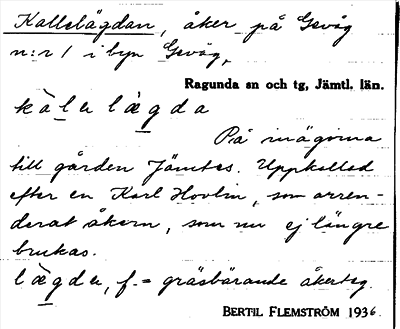 Kallelägdan, åker på Gevåg
n:r 1 i byn Gevåg,
Ragunda sn och tg, Jämtl. län.
kàlelægda
På inägorna
till gården Jämtes. Uppkallad
efter en Karl Hovlin, som arren-
derat åkern, som nu ej längre
brukas.
lægda, f. = gräsbärande åkerteg.
BERTIL FLEMSTRÖM 1936.